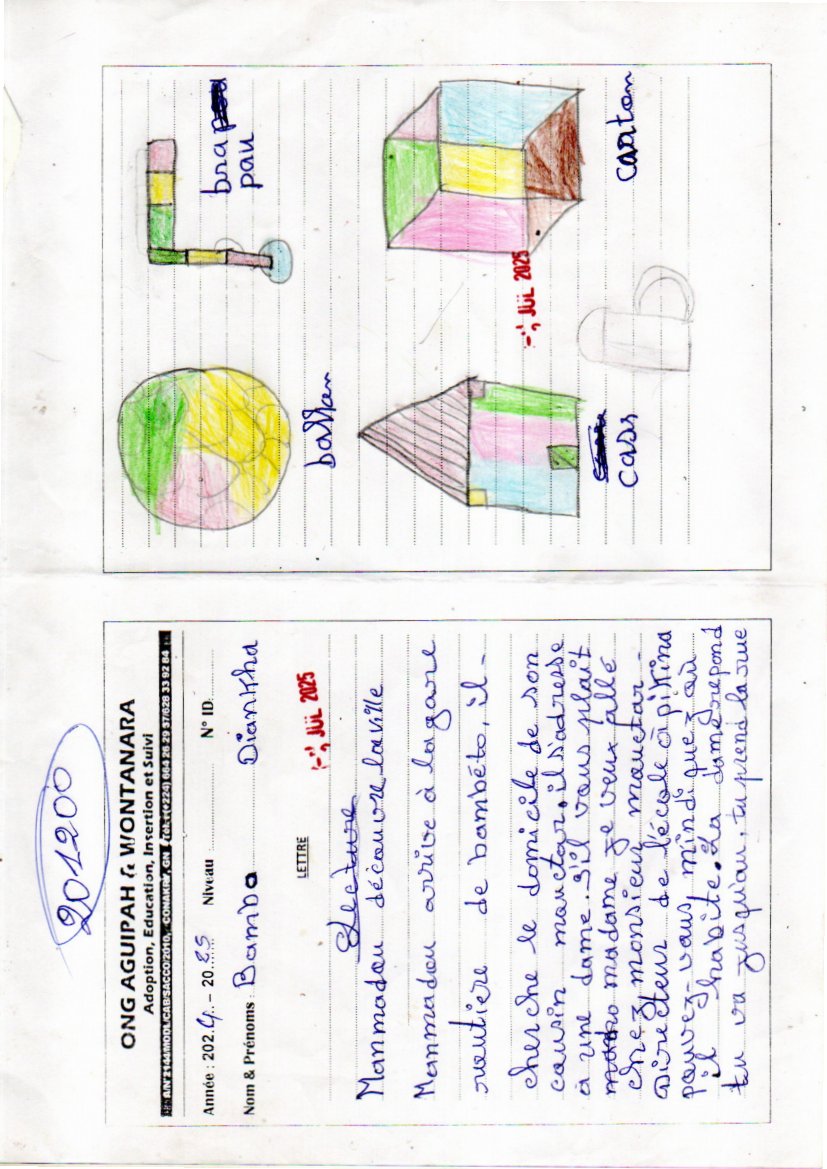 201200
ONG AGUIPAH & WONTANARA
Adoption, Education, Insertion et Suivi
Année : 2024 – 2025 Niveau N° ID
Nom & Prénoms : Bamba Diankha
JUL 2025
LETTRE
Lecture
Mammadou découvre la ville
Mammadou arrive à la gare
routière de bambéto, il-
cherche le domicile de son
cousin mouctar, il s'adresse
à une dame. S'il vous plait
madame je veux allé
chez monsieur mouctar-
Directeur de l'école à pikina
pouvez-vous m'indiquez où
il habite. La dame repond
tu va jusqu'au, tu prend la rue
ballon
bra
pau
cass
JUL 2025
carton